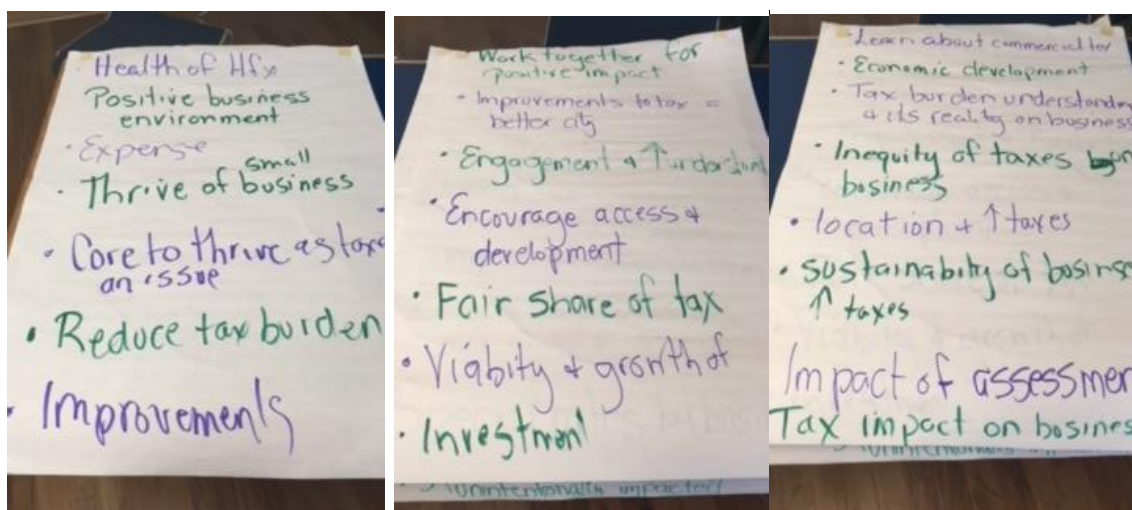 · Health of Hfx
Positive business
environment
· Expense
small
· Thrive of business
· Core to thrive as taxe
an issue
• Reduce tax burden
• Improvements
Work together for
positive impact
· Improvements to tax =
better city
· Engagement + ↑
· Encourage access +
development
· Fair share of tax
· Viabity + growth of
· Investment
· unintentionally impacted
· Learn about commercial
· Economic development
· Tax burden understandin
+ its reality on business
· Inequity of taxes
business
• location + ↑ taxes
• sustainabity of busine
↑ taxes
Impact of assessmen
Tax impact on busines